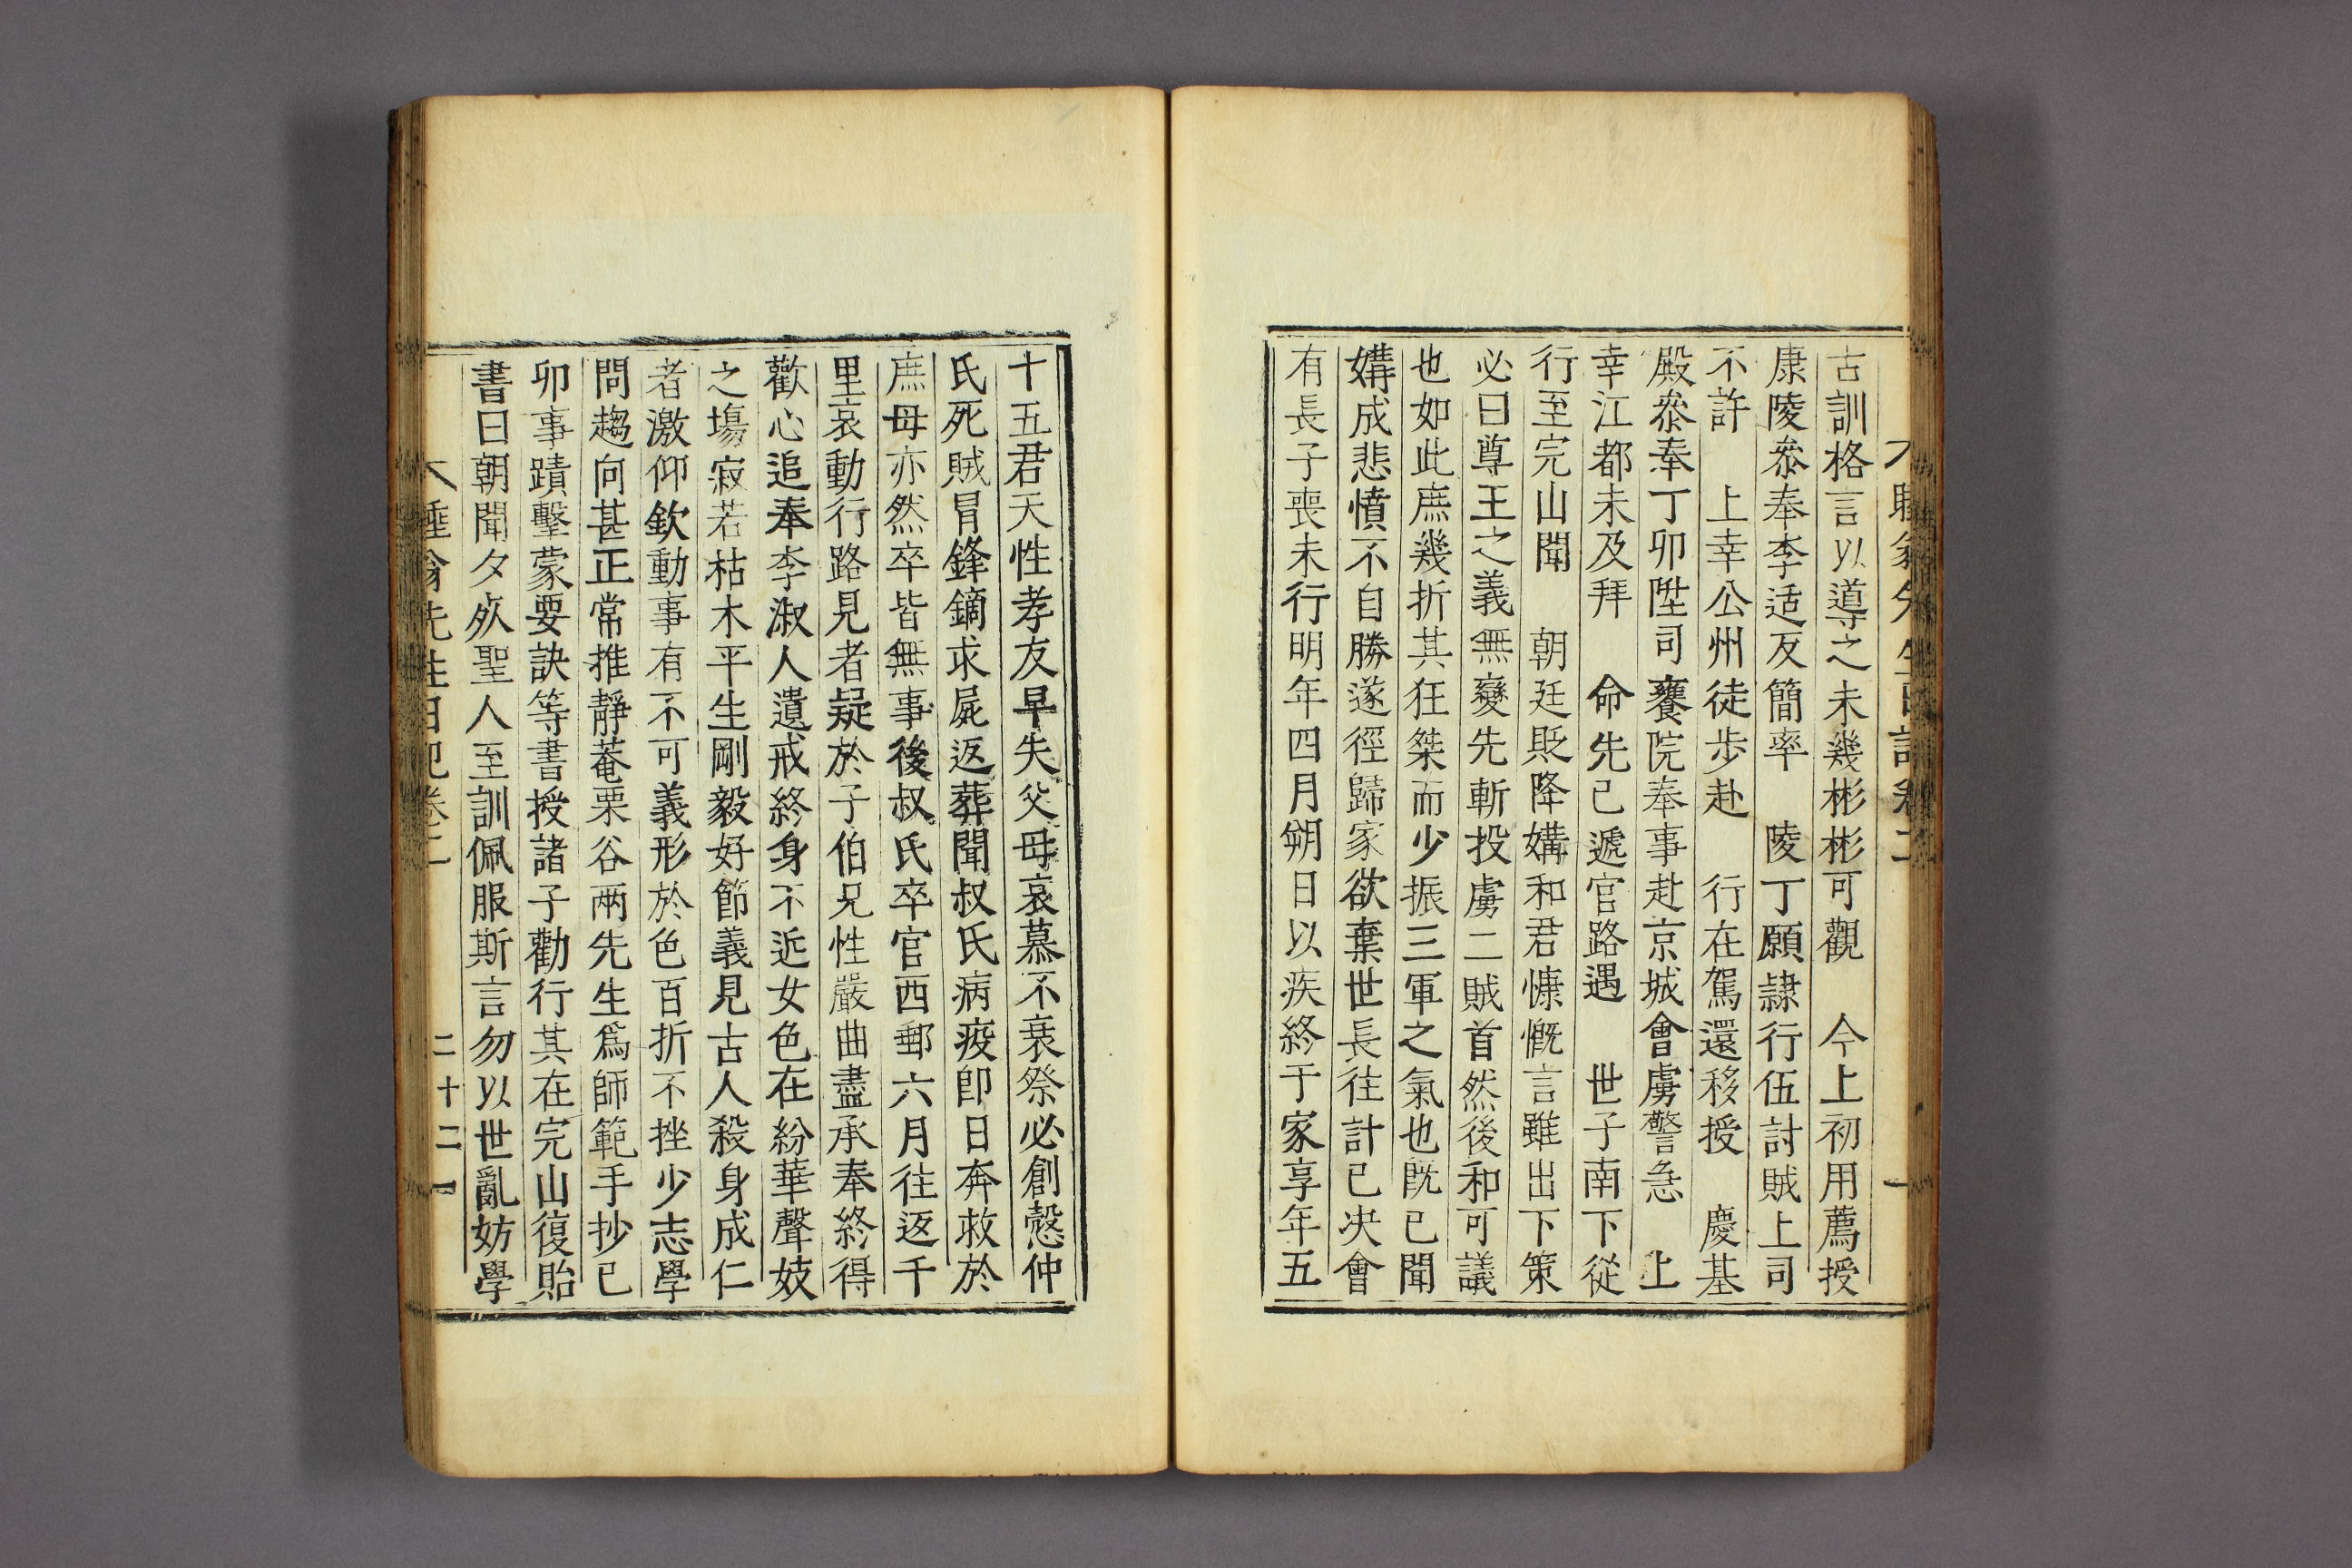 古訓格言以導之未幾彬彬可觀　今上初用薦授
康陵叅奉李适反簡率　陵丁願隷行伍討賊上司
不許　上幸公州徒步赴　行在駕還移授　慶基
殿叅奉丁卯陞司饔院奉事赴京城會虜警急　上
幸江都未及拜　命先已遞官路遇　世子南下從
行至完山聞　朝廷貶降媾和君慷慨言雖出下策
必曰尊王之義無變先斬投虜二賊首然後和可議
也如此庶幾折其狂桀而少振三軍之氣也旣已聞
媾成悲憤不自勝遂徑歸家欲棄世長往計已决會
有長子喪未行明年四月朔日以疾終于家享年五
十五君天性孝友早失父母哀慕不衰祭必創慤仲
氏死賊冒鋒鏑求屍返葬聞叔氏病疫卽日奔救於
庶母亦然卒皆無事後叔氏卒官西郵六月往返千
里哀動行路見者疑於子伯兄性嚴曲盡承奉終得
歡心追奉李淑人遺戒終身不近女色在紛華聲妓
之塲寂若枯木平生剛毅好節義見古人殺身成仁
者激仰欽動事有不可義形於色百折不挫少志學
問趨向甚正常推靜菴栗谷兩先生爲師範手抄己
卯事蹟擊蒙要訣等書授諸子勸行其在完山復貽
書曰朝聞夕死聖人至訓佩服斯言勿以世亂妨學
睡翁先生日記卷二
二十二